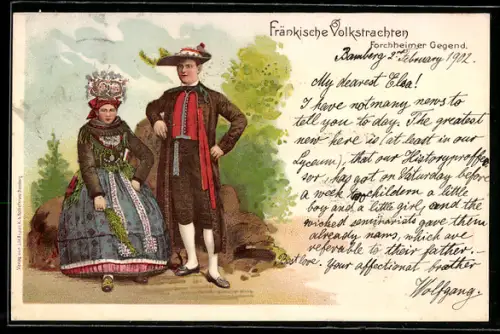 Fränkische Volkstrachten
Forchheimer Gegend.
Bamberg 2nd February 1902.
My dearest Elsa!
I have not many news to
tell you to day. The greatest
new here is (at least in our
Lyceum), that our Historyproffes-
sor, has got on Saturday before
a week 2 childern a little
boy and a little girl, and the
wicked seminarists gave them
already nams, which are
referable to their father.
Best love. Your affectional brother
Wolfgang.